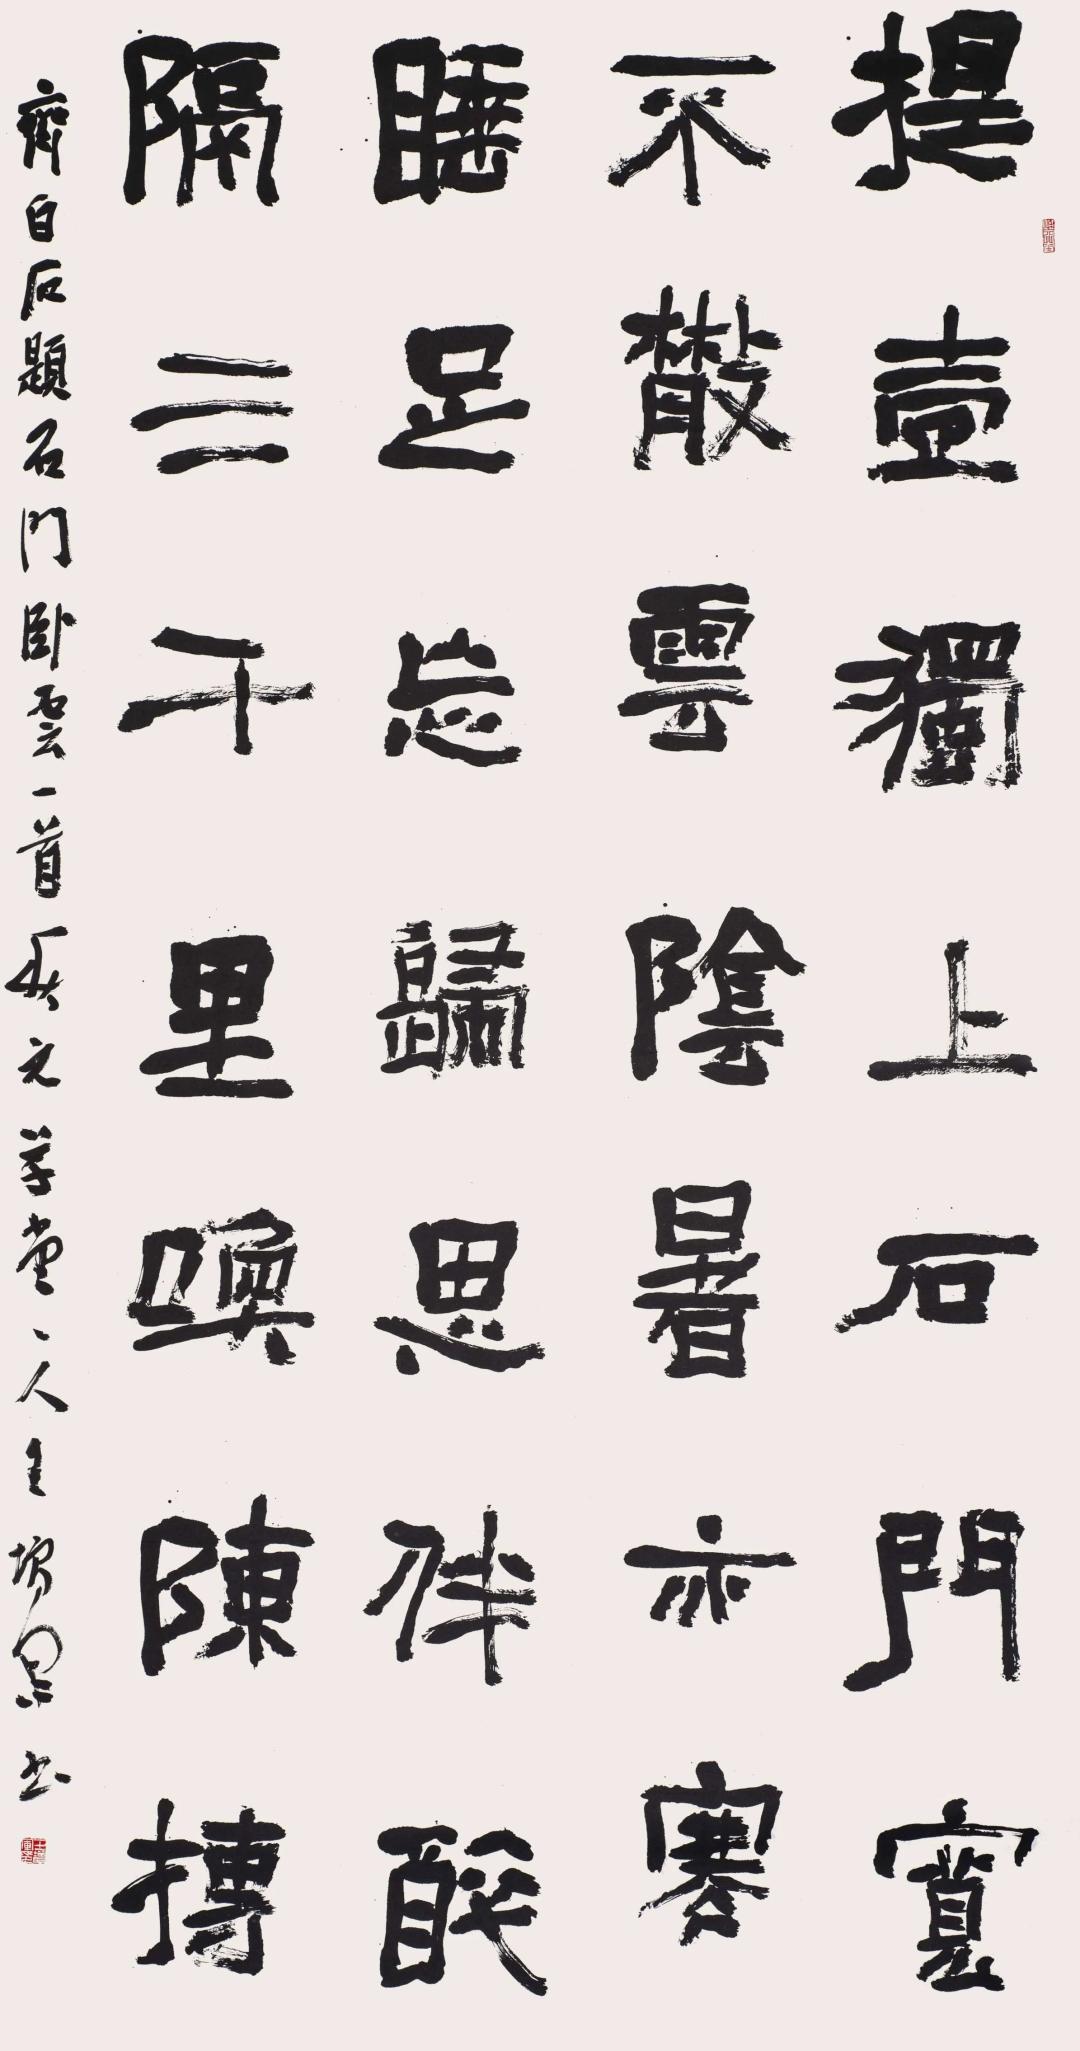 提壺獨上石門寬
不散雲陰暑亦寒
睡足忘歸思伴醉
隔三千里喚陳摶
齊白石題石門臥雲一首元草堂人王书